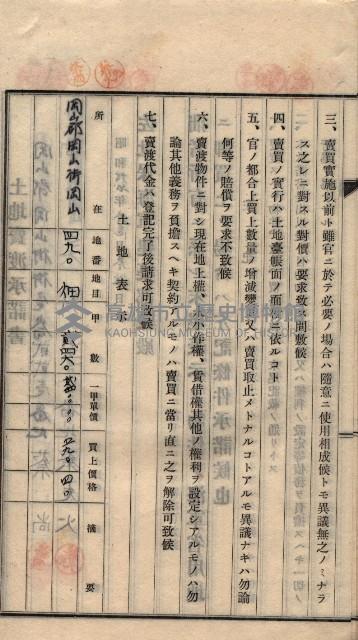 三、賣買實施以前ト雖官ニ於テ必要ノ場合ハ隨意ニ使用相成候トモ異議無之ノミナラ
ス之レニ對スル對價ハ要求致ス間敷候
四、賣買ノ實行ハ土地臺帳面ノ面積ニ依ルコト
五、官ノ都合上買上數量ノ增減變更又ハ賣買取止メトナルコトアルモ異議ナキハ勿論
何等ノ賠償ヲ要求不致候
六、賣渡物件ニ對シ現在地上權、永小作權、賃借權其他ノ權利ヲ設定シアルモノハ勿
論其他義務ヲ負擔スヘキ契約アルモノハ賣買ニ當リ直ニ之ヲ解除可致候
七、賣渡代金ハ登記完了後請求可致候
土地表示
所在 地番 地目 甲數 一甲單價 買上價格 摘要
岡山郡岡山街岡山 四九〇 畑
高雄市立歷史博物館
KAOHSIUNG MUSEUM OF HISTORY